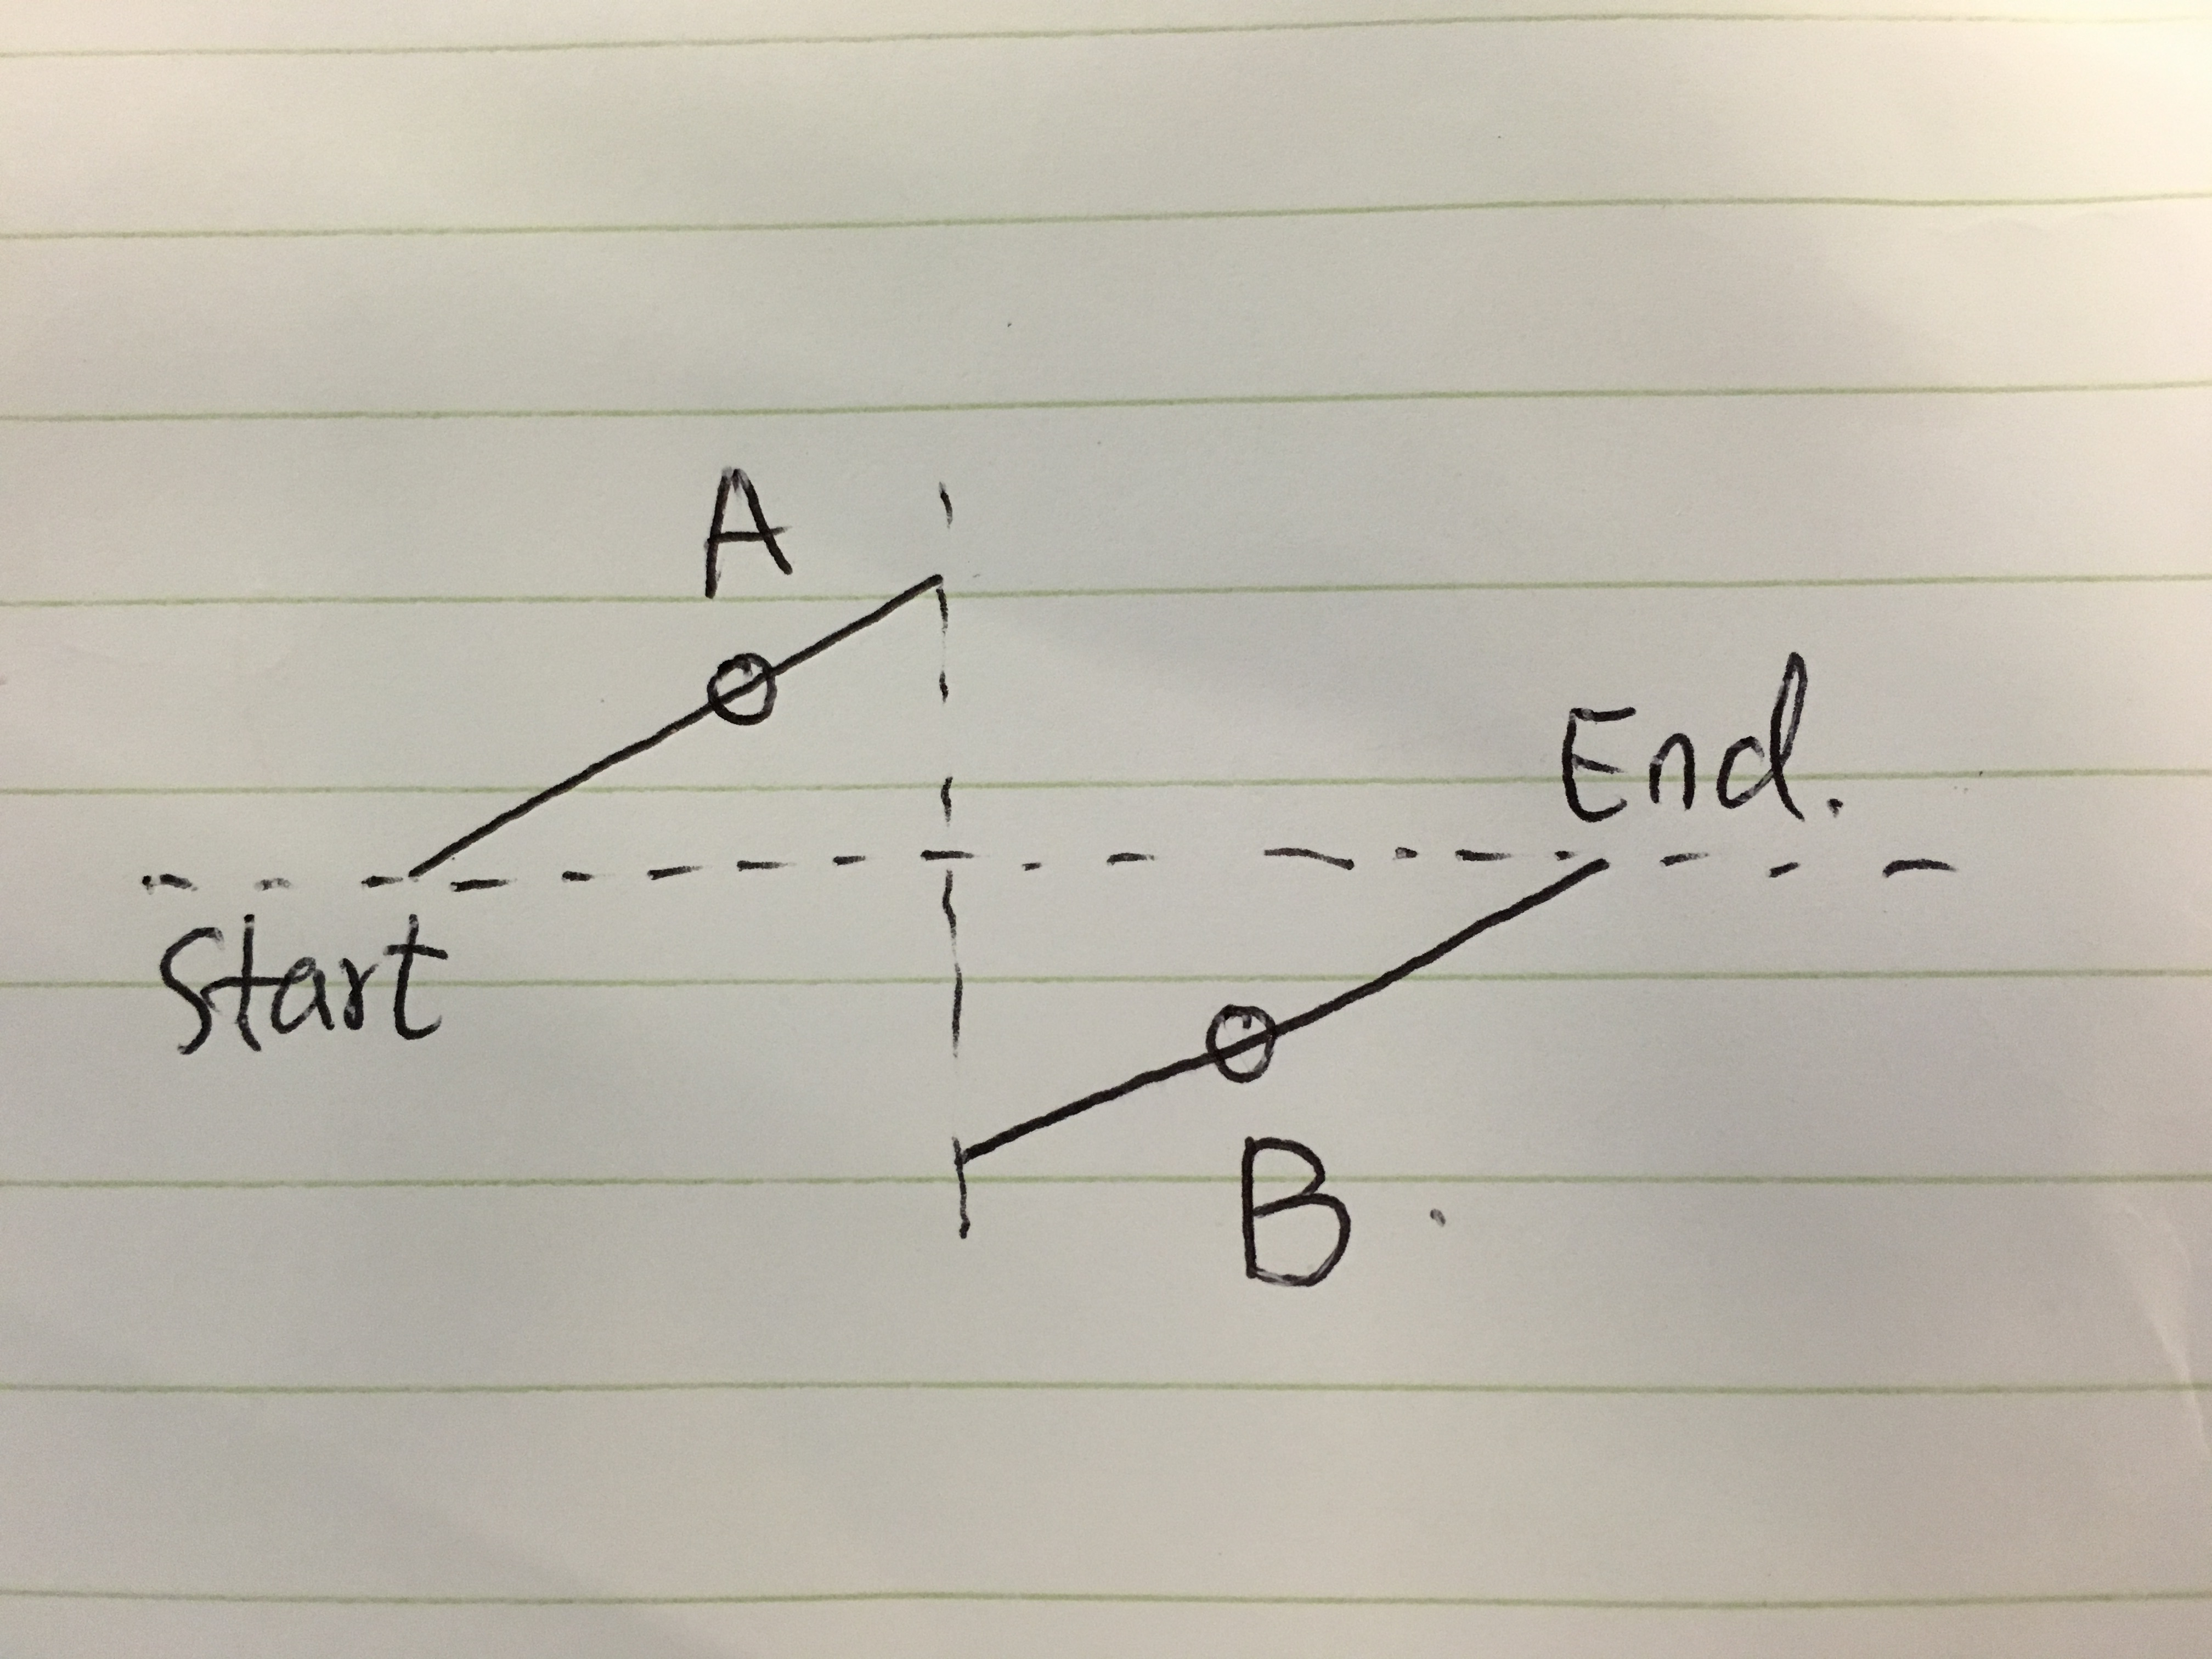 A
End.
Start
B.